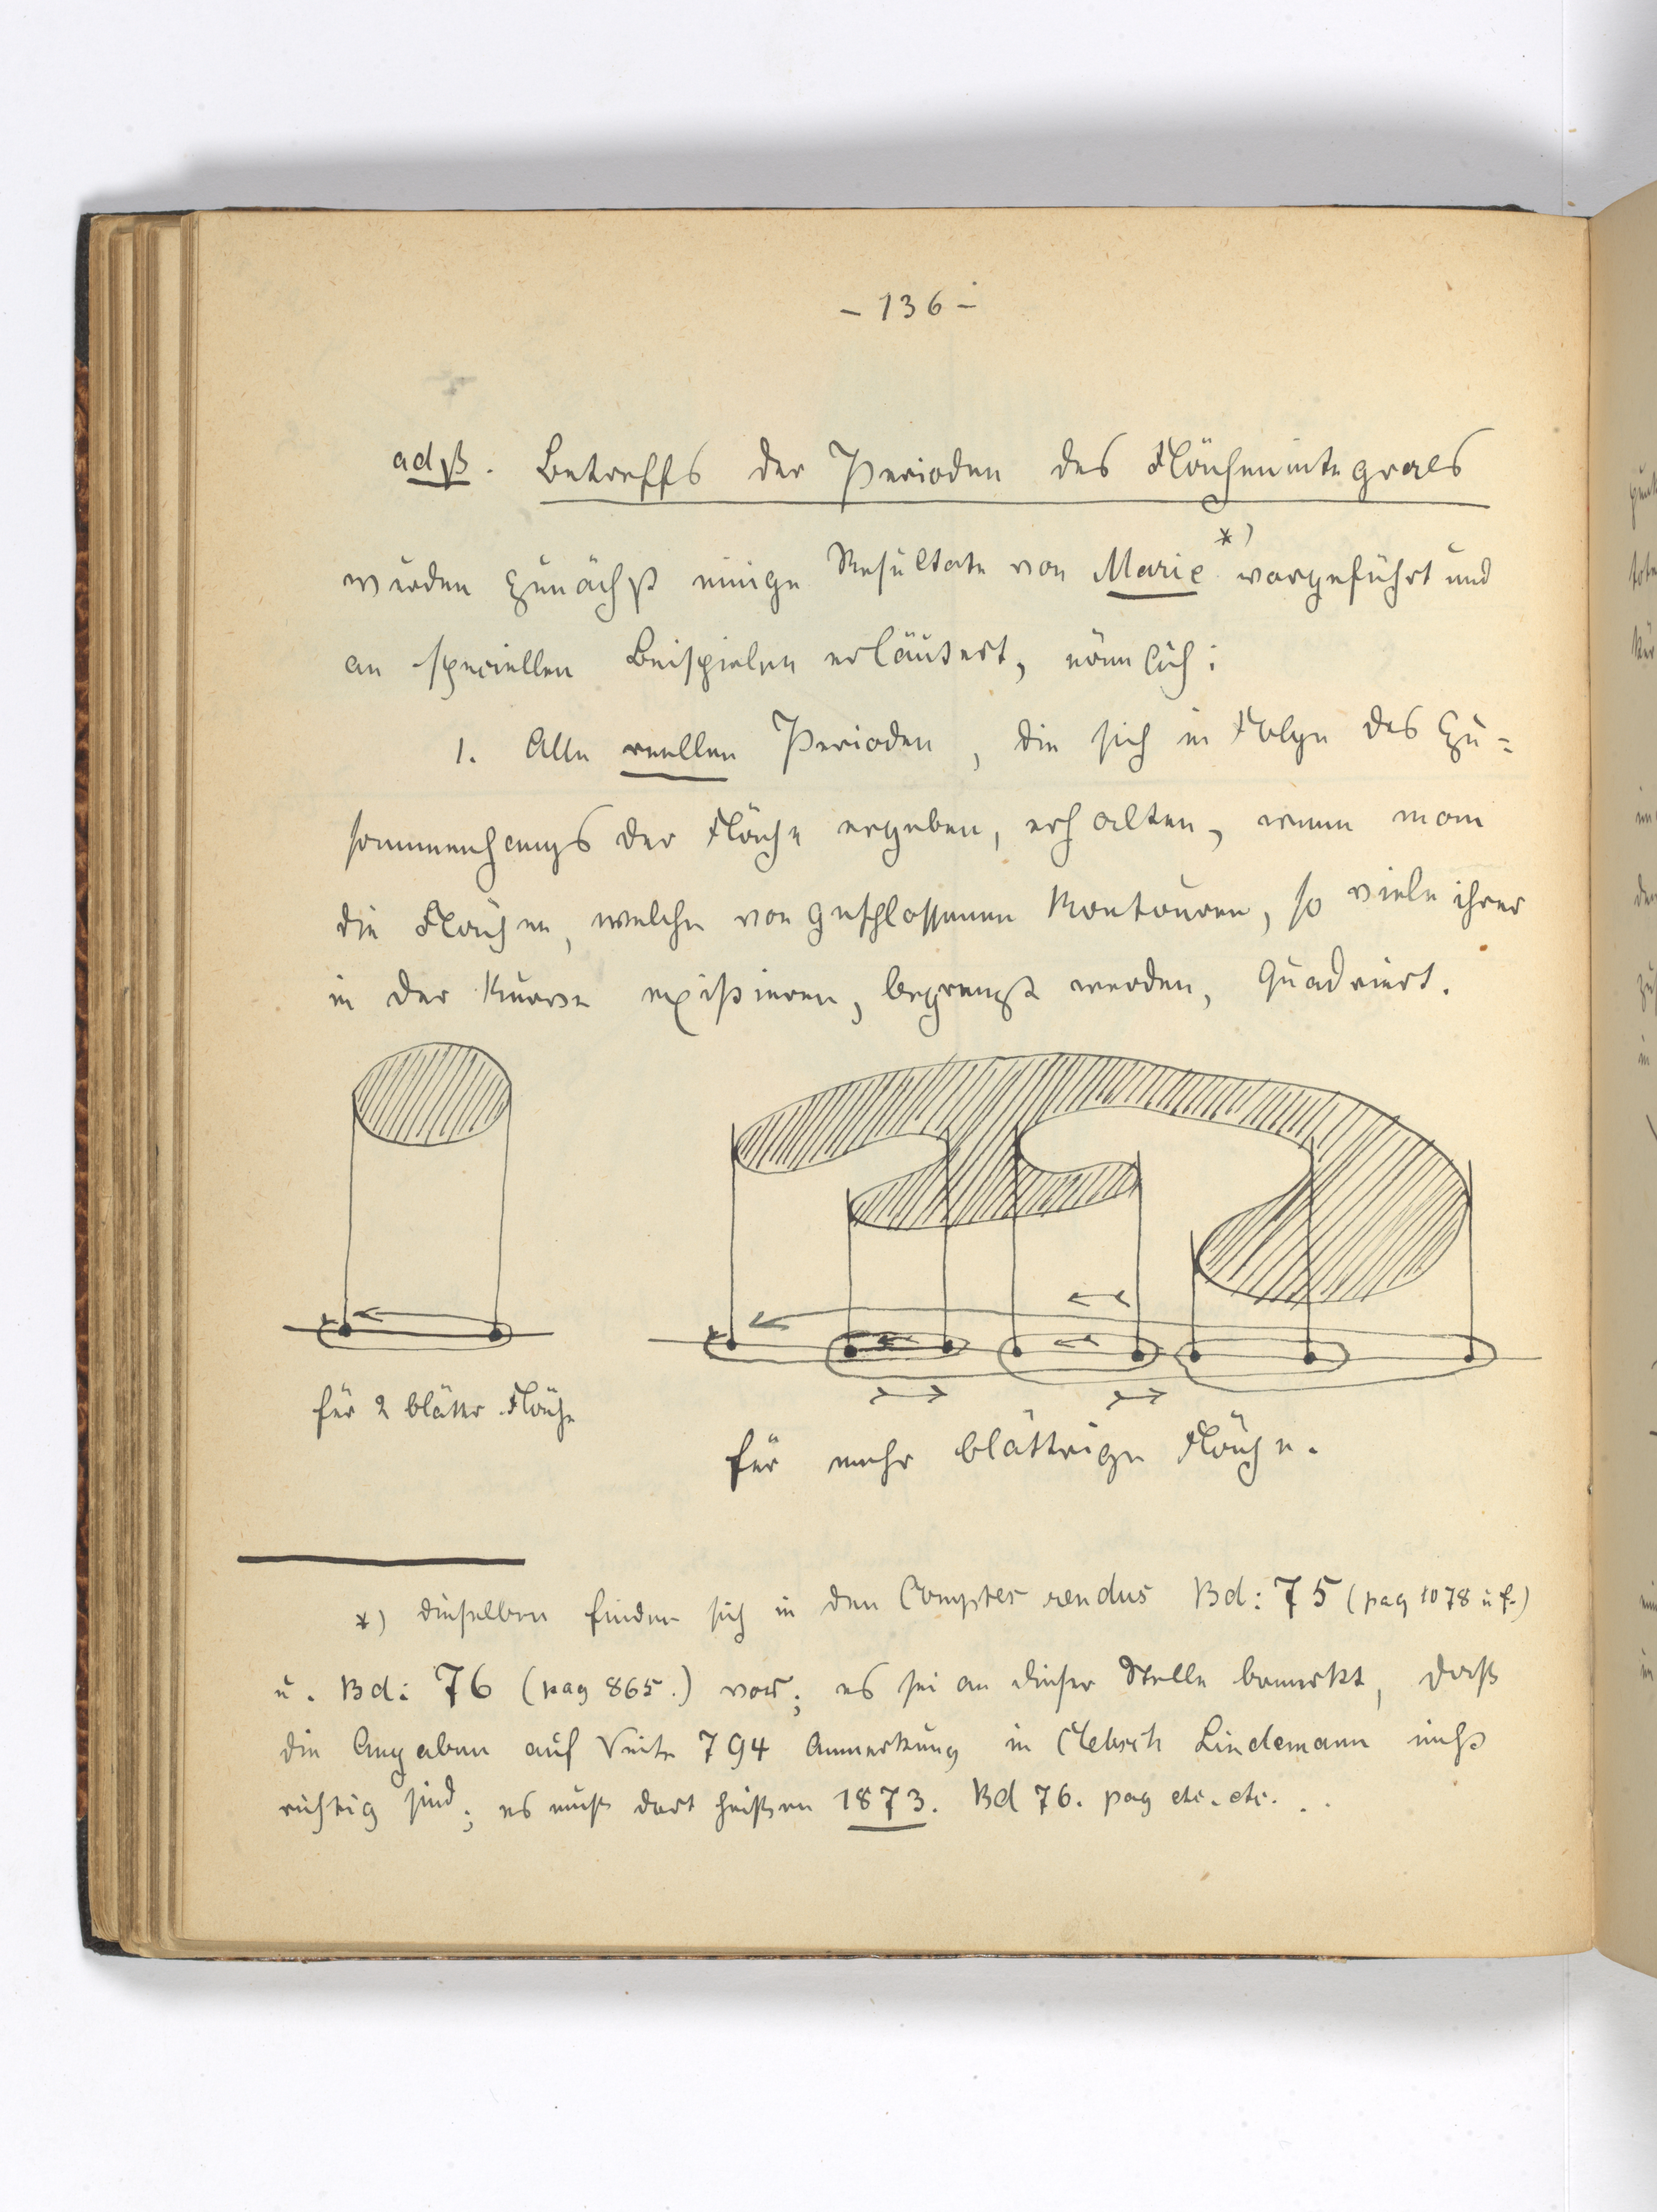 – 136 –
ad β. Betreffs der Perioden des Flächenintegrals
wurden zunächst einige Resultate von Marie *) vorgeführt und
an speciellen Beispielen erläutert, nämlich:
1. Alle reellen Perioden, die sich in Folge des Zu=
sammenhangs der Fläche ergeben, erhalten, wenn man
die Flächen, welche von geschlossenen Kontouren, so viele ihrer
in der Kurve existieren, begrenzt werden, quadriert.
für 2 blättr. Fläche
für mehr blättrige Fläche.
*) dieselben finden sich in den Comptes rendus Bd: 75 (pag 1078 u f.)
u. Bd: 76 (pag 865.) vor; es sei an dieser Stelle bemerkt, daß
die Angaben auf Seite 794 Anmerkung in Clebsch Lindemann nicht
richtig sind; es muß dort heißen 1873. Bd 76. pag etc. etc. . .